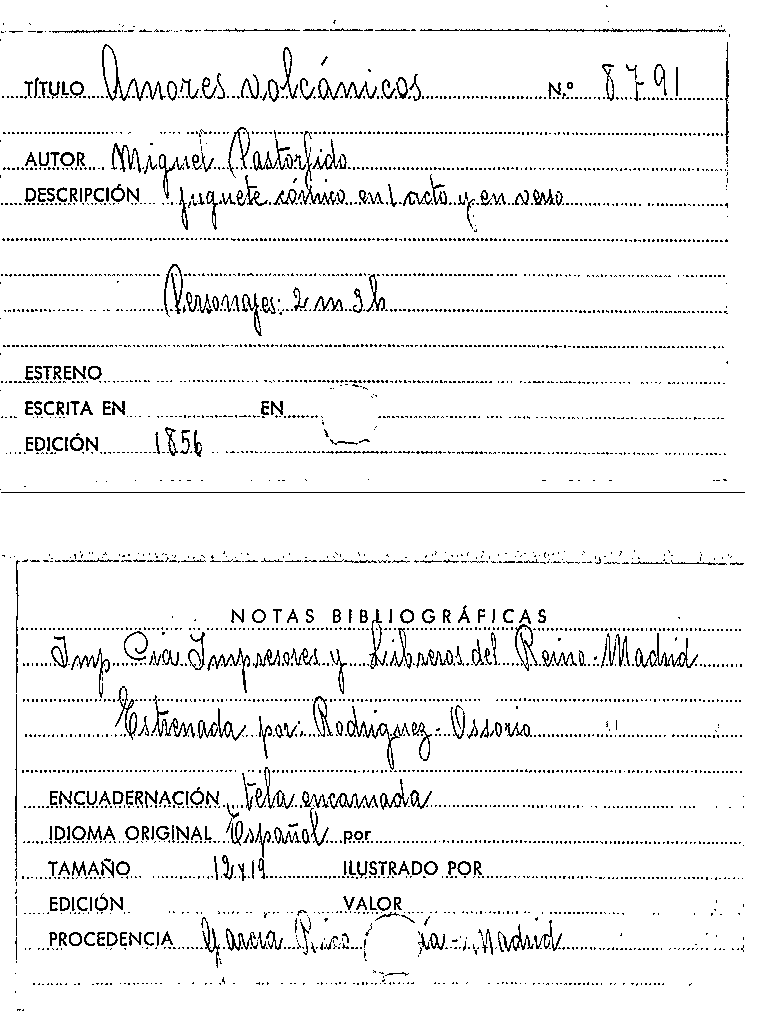 TÍTULO Amores volcánicos N.º 8791
AUTOR Miguel Pastorfido
DESCRIPCIÓN juguete cómico en 1 acto y en verso
Personajes: 2 m 3 h
ESTRENO
ESCRITA EN EN
EDICIÓN 1856
NOTAS BIBLIOGRÁFICAS
Imp Cia Impresores y Libreros del Reino - Madrid
Estrenada por: Rodriguez - Ossorio
ENCUADERNACIÓN tela encarnada
IDIOMA ORIGINAL Español por
TAMAÑO 12x19 ILUSTRADO POR
EDICIÓN VALOR
PROCEDENCIA García Rico ía - Madrid